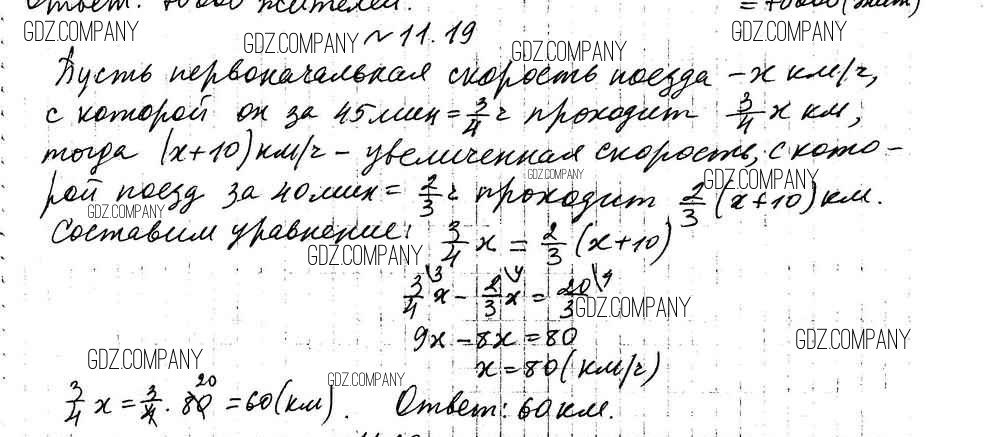 Ответ: 70000 жителей. = 70000 (жит)
GDZ.COMPANY GDZ.COMPANY № 11.19 GDZ.COMPANY GDZ.COMPANY
Пусть первоначальная скорость поезда – x км/ч,
с которой он за 45 мин = 3/4 ч проходит 3/4 x км,
тогда (x+10) км/ч – увеличенная скорость, с кото-
GDZ.COMPANY GDZ.COMPANY
рой поезд за 40 мин = 2/3 ч проходит 2/3 (x+10) км.
GDZ.COMPANY
Составим уравнение: 3/4 x = 2/3 (x+10)
GDZ.COMPANY
3/4 \3 x – 2/3 \4 x = 20/3 \4
GDZ.COMPANY
9x – 8x = 80
GDZ.COMPANY GDZ.COMPANY
x = 80 (км/ч)
GDZ.COMPANY
3/4 x = 3/4 · 80 20 = 60 (км). Ответ: 60 км.